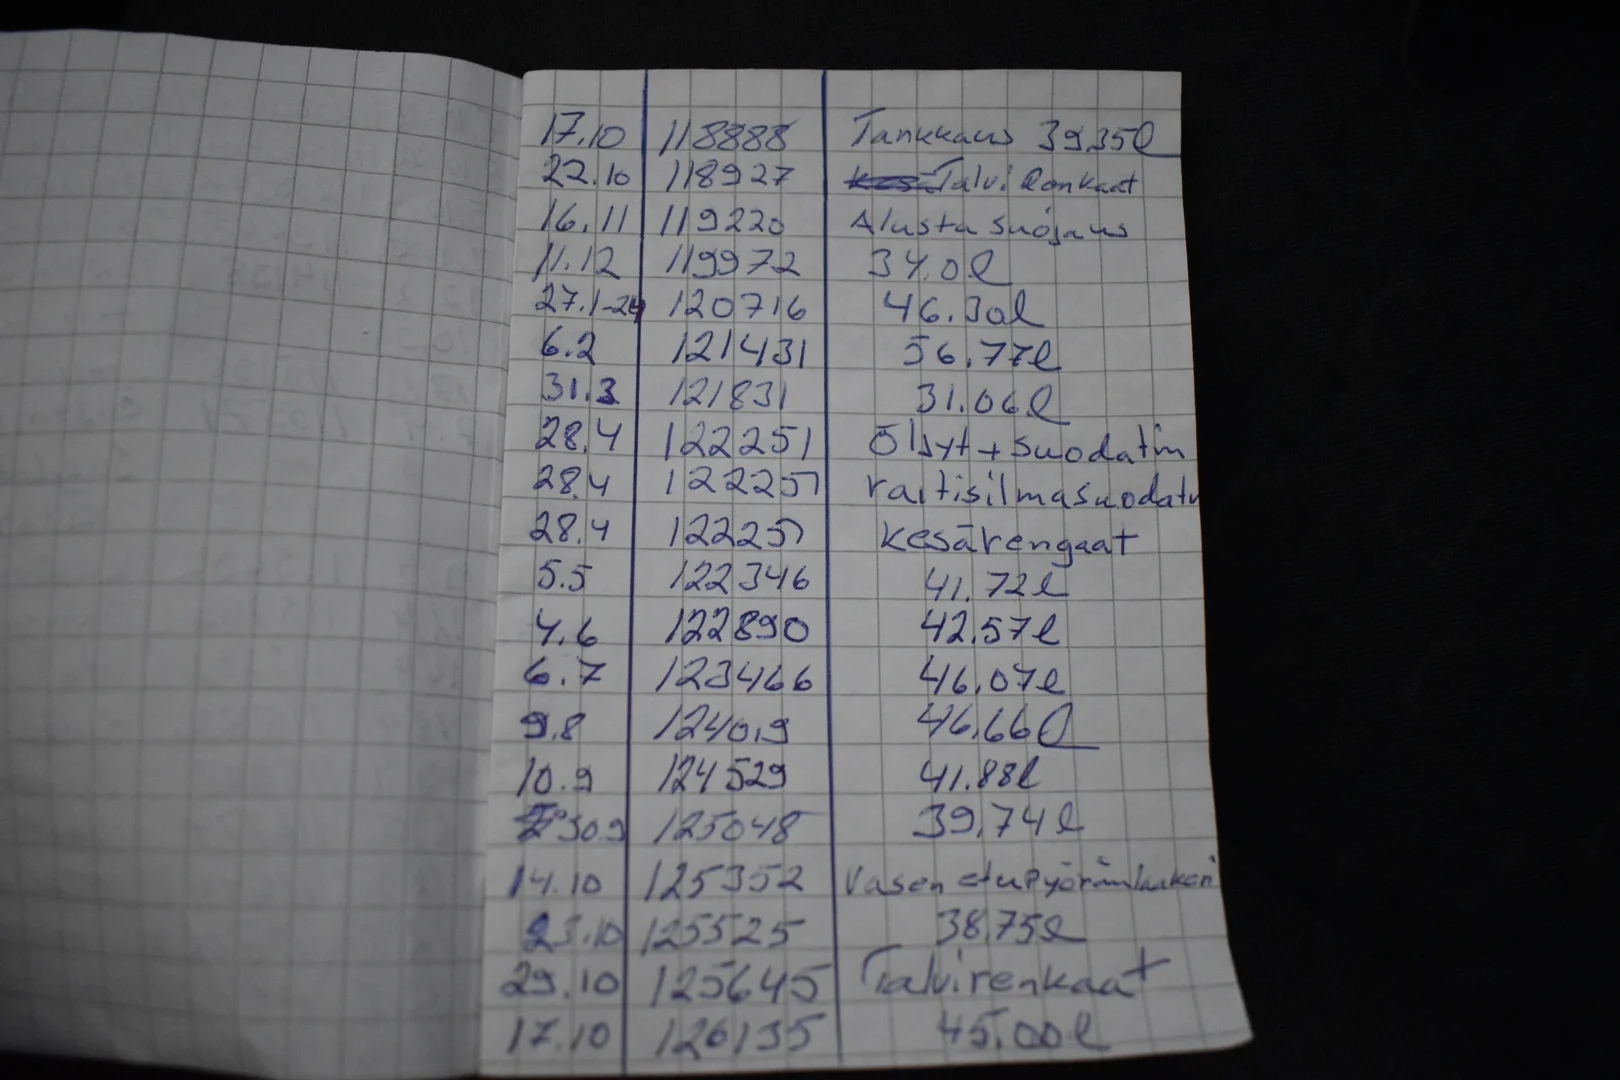 17.10 118888 Tankkaus 39.35l
22.10 118927 Talvi Renkaat
16.11 119220 Alusta suojaus
11.12 119972 34.0l
27.1-24 120716 46.30l
6.2 121431 56.77l
31.3 121831 31.06l
28.4 122251 Öljyt + suodatin
28.4 122251 raitisilmasuodatin
28.4 122251 Kesärengaat
5.5 122346 41.72l
4.6 122890 42.57l
6.7 123466 46.07l
9.8 124019 46.66l
10.9 124529 41.88l
30.9 125048 39.74l
14.10 125352 Vasen etupyöränlaakeri
23.10 125525 38.75l
29.10 125645 Talvirenkaat
17.10 126135 45.00l